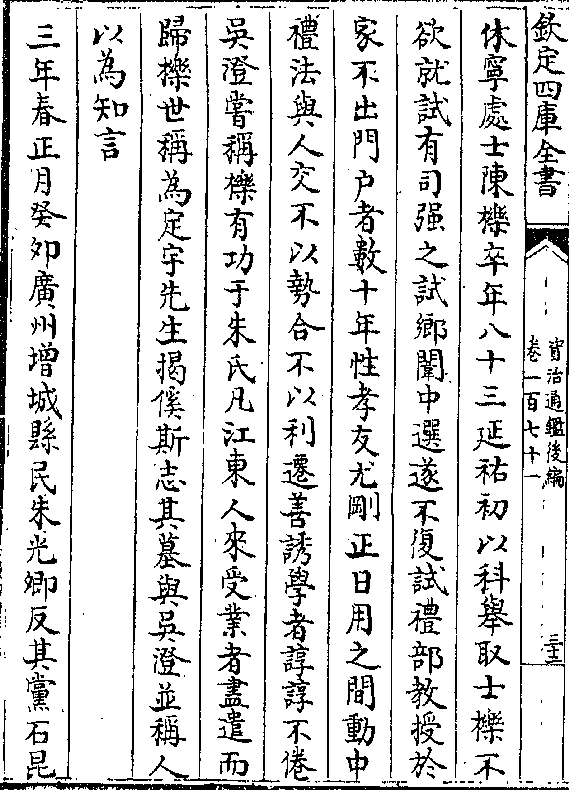 欽定四庫全書
資治通鑑後編
卷一百七十一
三十三
休寧處士陳櫟卒年八十三延祐初以科舉取士櫟不
欲就試有司强之試鄉闈中選遂不復試禮部教授於
家不出門戶者數十年性孝友尤剛正日用之間動中
禮法與人交不以勢合不以利遷善誘學者諄諄不倦
吳澄嘗稱櫟有功于朱氏凡江東人來受業者盡遣而
歸櫟世稱為定宇先生揭傒斯志其墓與吳澄並稱人
以為知言
三年春正月癸夘廣州增城縣民朱光卿反其黨石昆